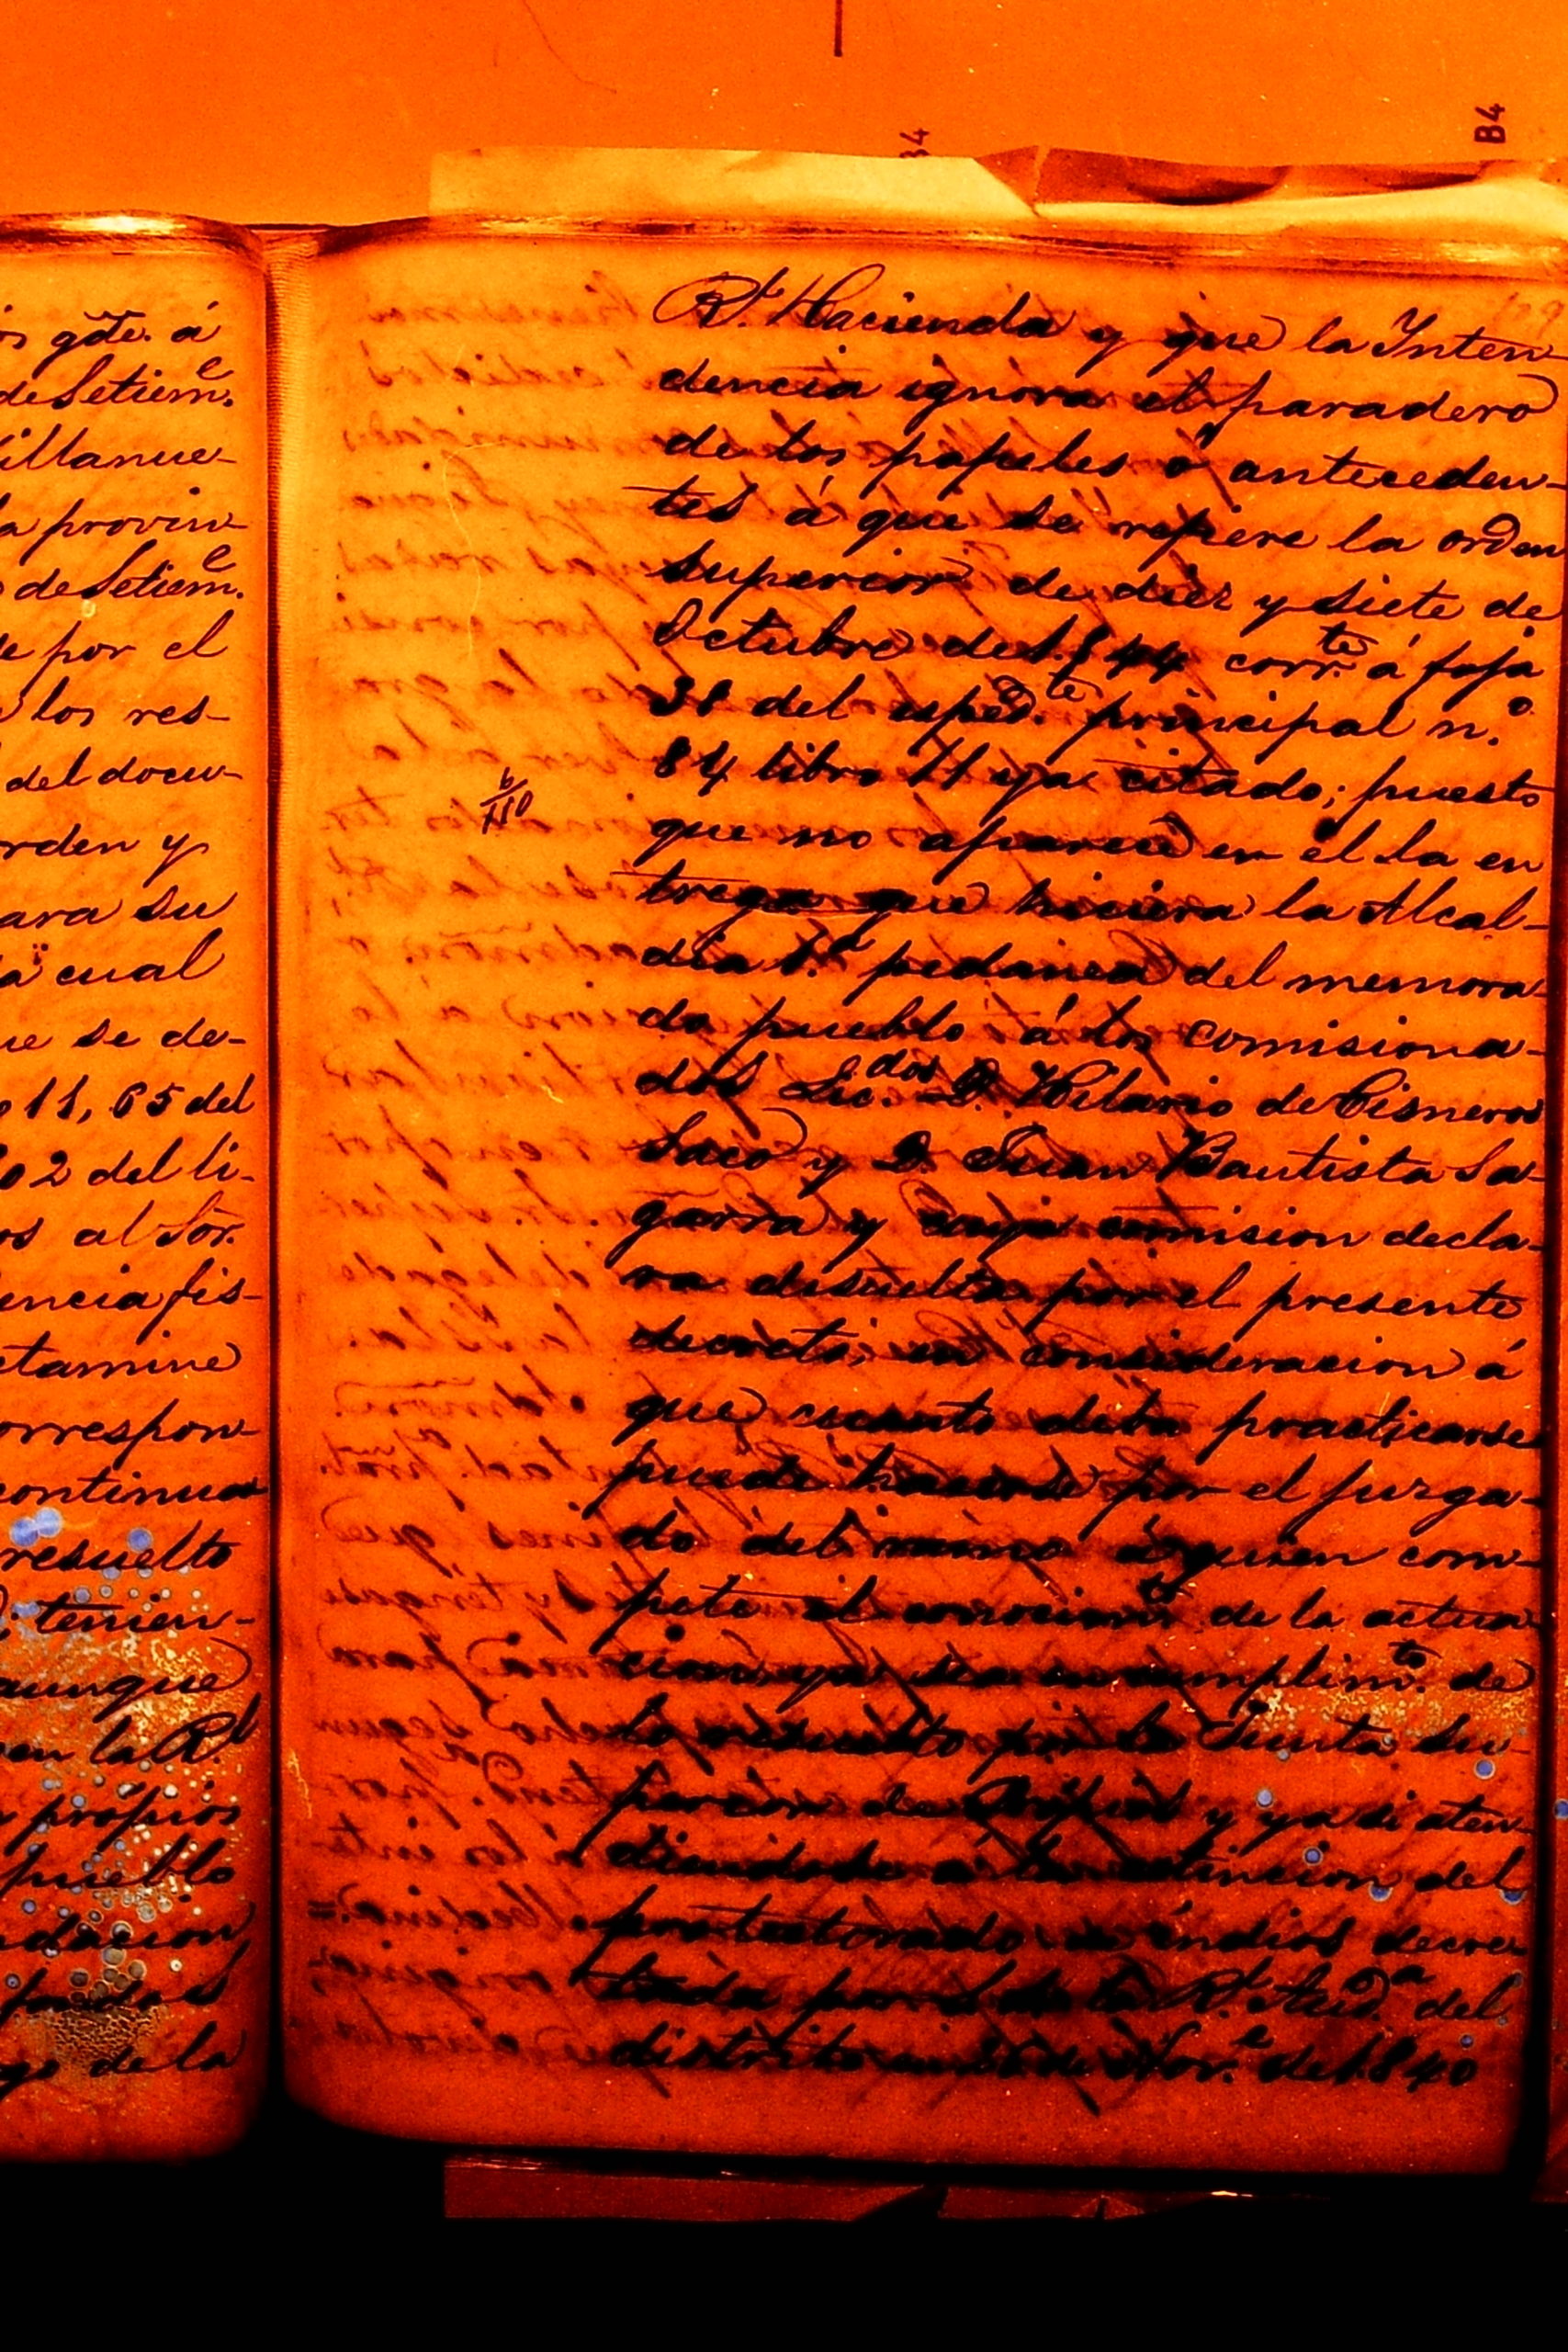 B4
B4
s gde. á
de Setiem.e
illanue-
a provin-
de Setiem.e
e por el
los res-
del docu-
rden y
ara su
a cual
ue se de-
11, 65 del
102 del li-
os al Sor.
encia fis-
etamine
orrespon-
continua
resuelto
tenien-
aunque
en la Rl.
propios
pueblo
de la
109
Rl. Hacienda y que la Inten-
dencia ignora el paradero
de los papeles ó anteceden-
tes á que se refiere la orden
superior de diez y siete de
Octubre de 1.844 corr.te á foja
38 del esped.te principal n.o
84 libro 11 ya citado; puesto
que no aparece en él la en
trega que hiciera la Alcal-
dia 1.a pedanea del memora-
do pueblo á los comisiona-
dos Lic.dos D. Hilario de Cisneros
Saco y D. Juan Bautista Sa-
garra y cuya comision decla-
ra desuelta por el presente
decreto, en consideracion á
que cuanto deba practicarse
puede hacerse por el juzga-
do del mismo á quien com-
pete el conocim.to de la actua-
cion ya sea en cumplim.to de
lo resuelto por la Junta Su-
perior de Propios y ya si aten-
diendose á la estincion del
protectorado de indios decre-
tada por S. de la Rl. Aud.a del
distrito en de Nov.e de 1.840
6/110